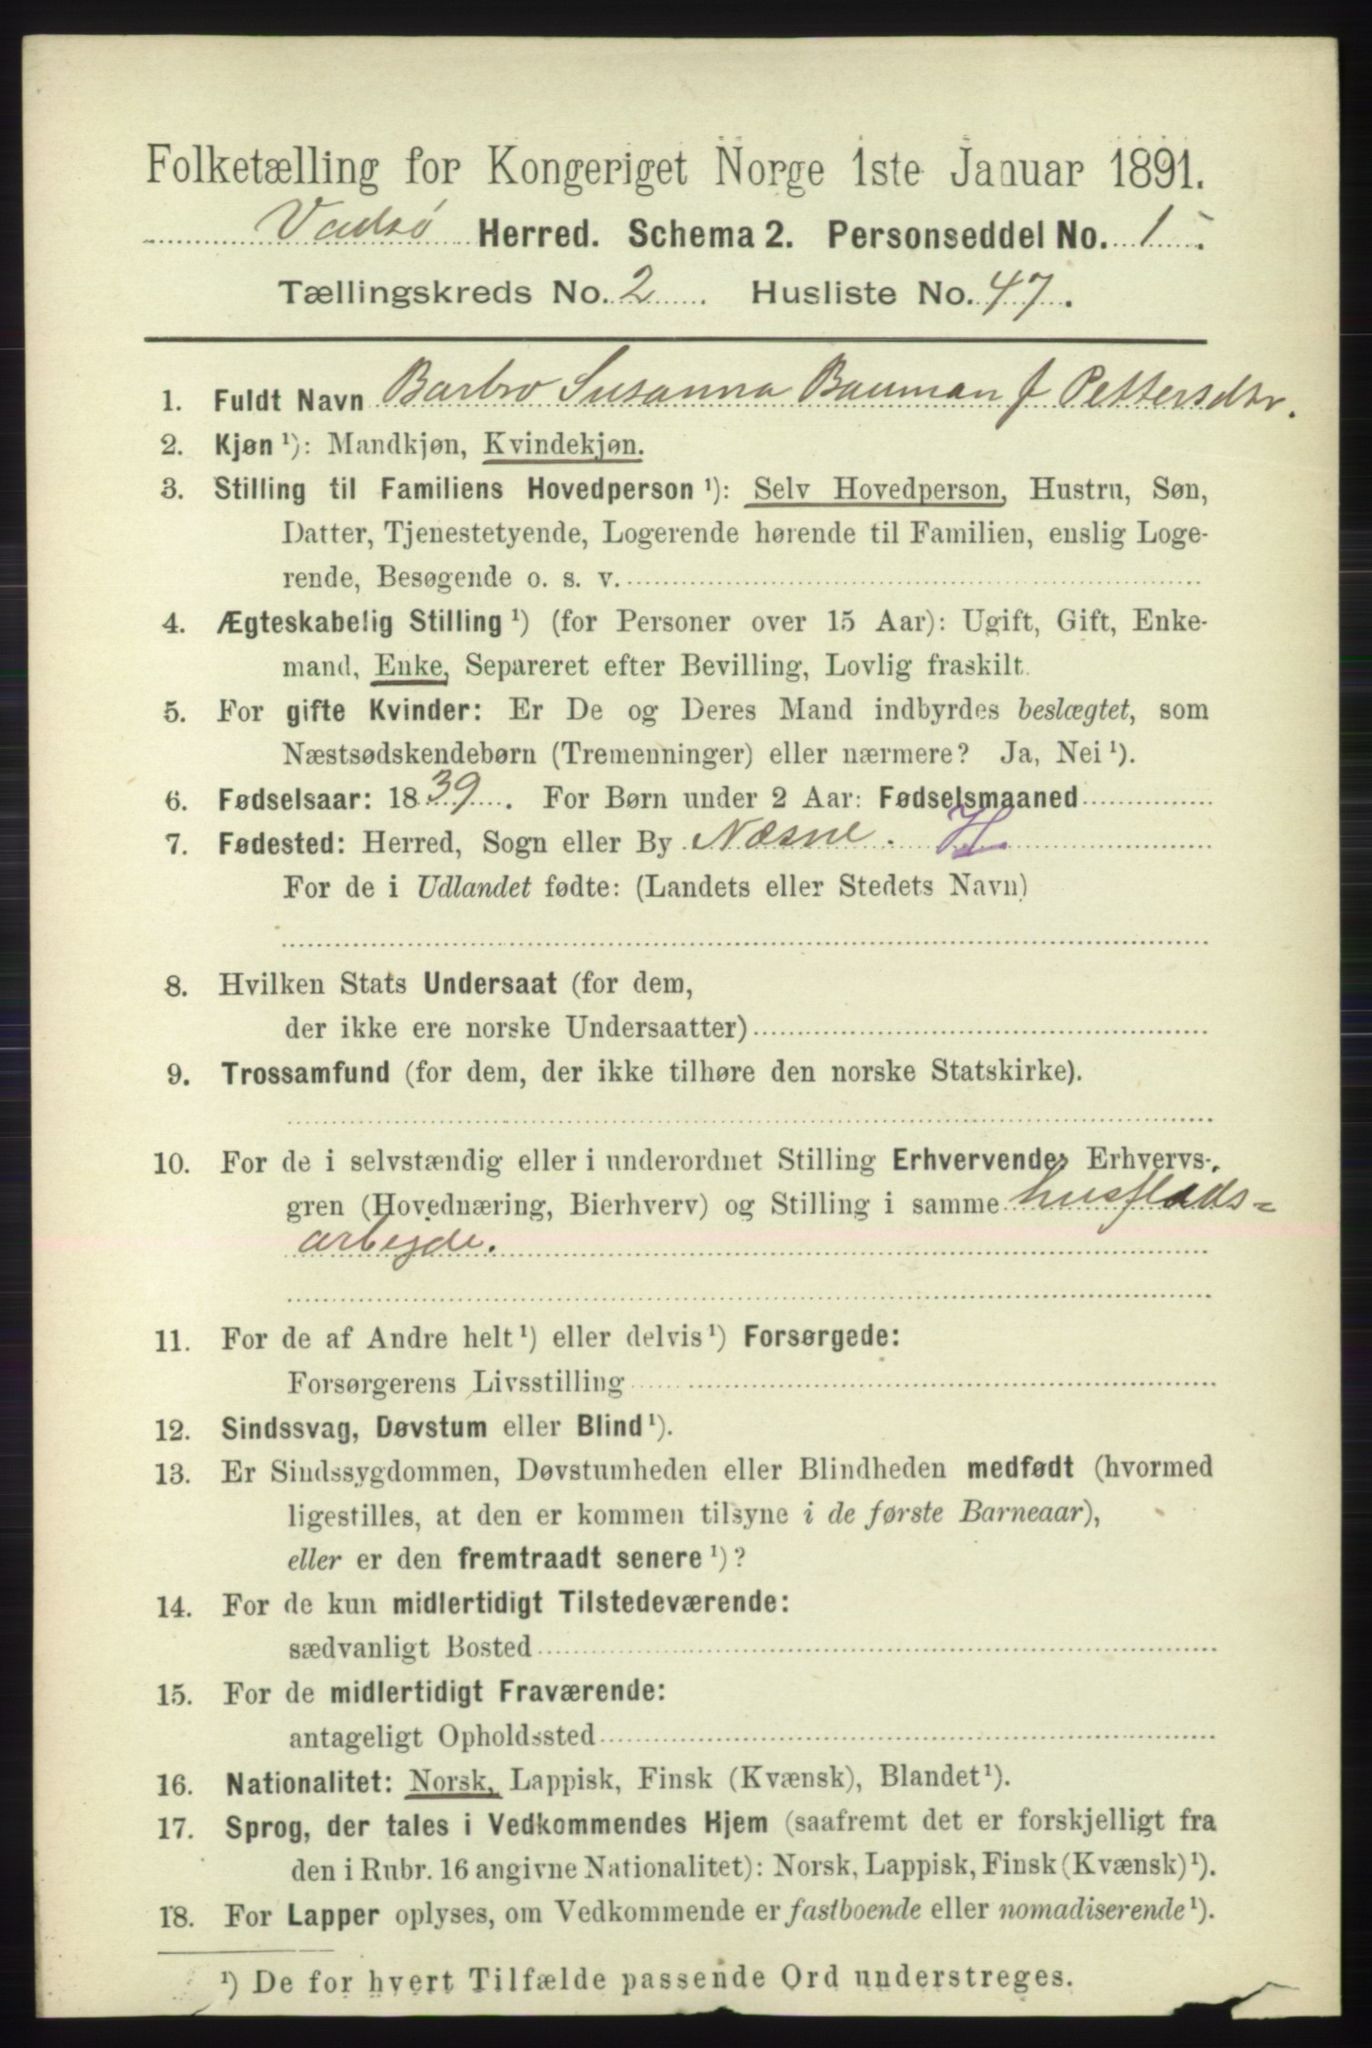 Folketælling for Kongeriget Norge 1ste Januar 1891.
Vadsø Herred. Schema 2. Personseddel No. 1
Tællingskreds No. 2 Husliste No. 47.
1. Fuldt Navn Barbro Susanna Bauman f Pettersdtr.
2. Kjøn ¹): Mandkjøn, Kvindekjøn.
3. Stilling til Familiens Hovedperson ¹): Selv Hovedperson, Hustru, Søn,
Datter, Tjenestetyende, Logerende hørende til Familien, enslig Loge-
rende, Besøgende o. s. v.
4. Ægteskabelig Stilling ¹) (for Personer over 15 Aar): Ugift, Gift, Enke-
mand, Enke, Separeret efter Bevilling, Lovlig fraskilt.
5. For gifte Kvinder: Er De og Deres Mand indbyrdes beslægtet, som
Næstsødskendebørn (Tremenninger) eller nærmere? Ja, Nei ¹).
6. Fødselsaar: 1839. For Børn under 2 Aar: Fødselsmaaned
7. Fødested: Herred, Sogn eller By Næsne. H
For de i Udlandet fødte: (Landets eller Stedets Navn)
8. Hvilken Stats Undersaat (for dem,
der ikke ere norske Undersaatter)
9. Trossamfund (for dem, der ikke tilhøre den norske Statskirke).
10. For de i selvstændig eller i underordnet Stilling Erhvervende: Erhvervs-
gren (Hovednæring, Bierhverv) og Stilling i samme husflids-
arbejde.
11. For de af Andre helt ¹) eller delvis ¹) Forsørgede:
Forsørgerens Livsstilling
12. Sindssvag, Døvstum eller Blind ¹).
13. Er Sindssygdommen, Døvstumheden eller Blindheden medfødt (hvormed
ligestilles, at den er kommen tilsyne i de første Barneaar),
eller er den fremtraadt senere ¹)?
14. For de kun midlertidigt Tilstedeværende:
sædvanligt Bosted
15. For de midlertidigt Fraværende:
antageligt Opholdssted
16. Nationalitet: Norsk, Lappisk, Finsk (Kvænsk), Blandet ¹).
17. Sprog, der tales i Vedkommendes Hjem (saafremt det er forskjelligt fra
den i Rubr. 16 angivne Nationalitet): Norsk, Lappisk, Finsk (Kvænsk) ¹).
18. For Lapper oplyses, om Vedkommende er fastboende eller nomadiserende ¹).
¹) De for hvert Tilfælde passende Ord understreges.